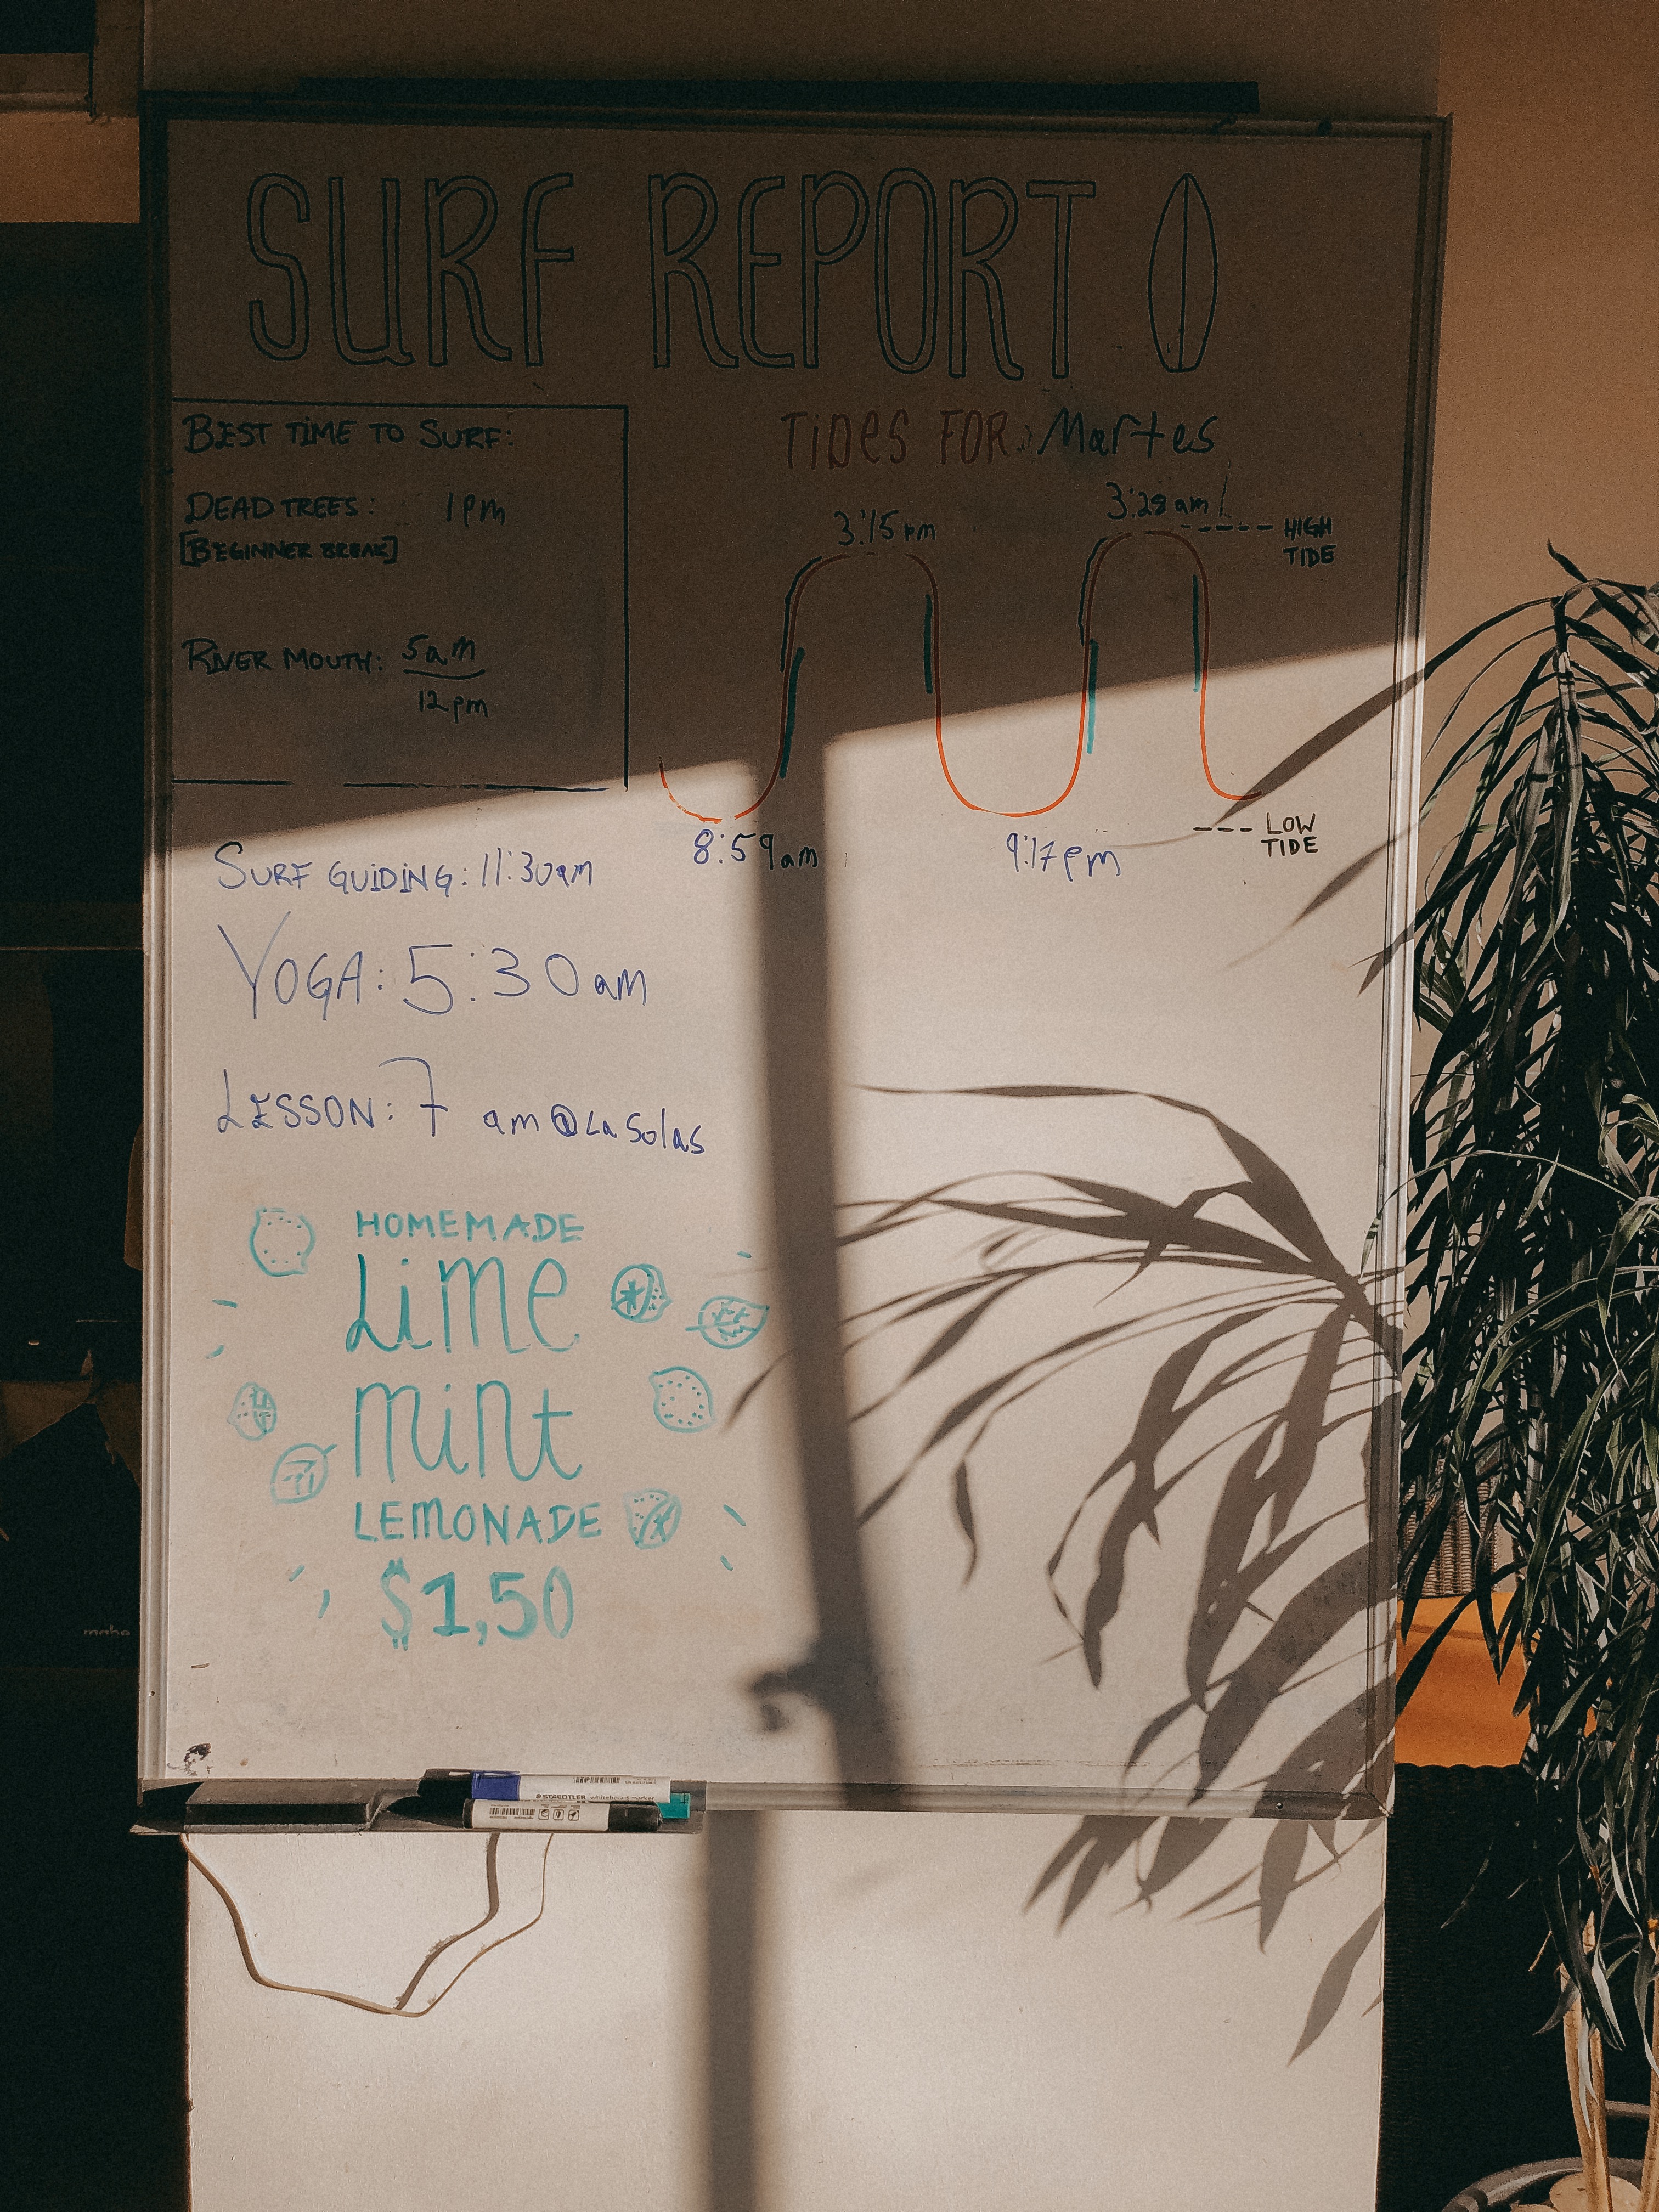 SURF REPORT
BEST TIME TO SURF:
DEAD TREES: 1pm
[BEGINNER BREAK]
RIVER MOUTH: 5am
12pm
TIDES FOR: Martes
3:15pm
3:28am
HIGH
TIDE
8:59am
9:17pm
LOW
TIDE
SURF GUIDING: 11:30am
YOGA: 5:30am
LESSON: 7 am @ La Solas
HOMEMADE
Lime
mint
LEMONADE
$1,50
STAEDTLER whiteboard marker